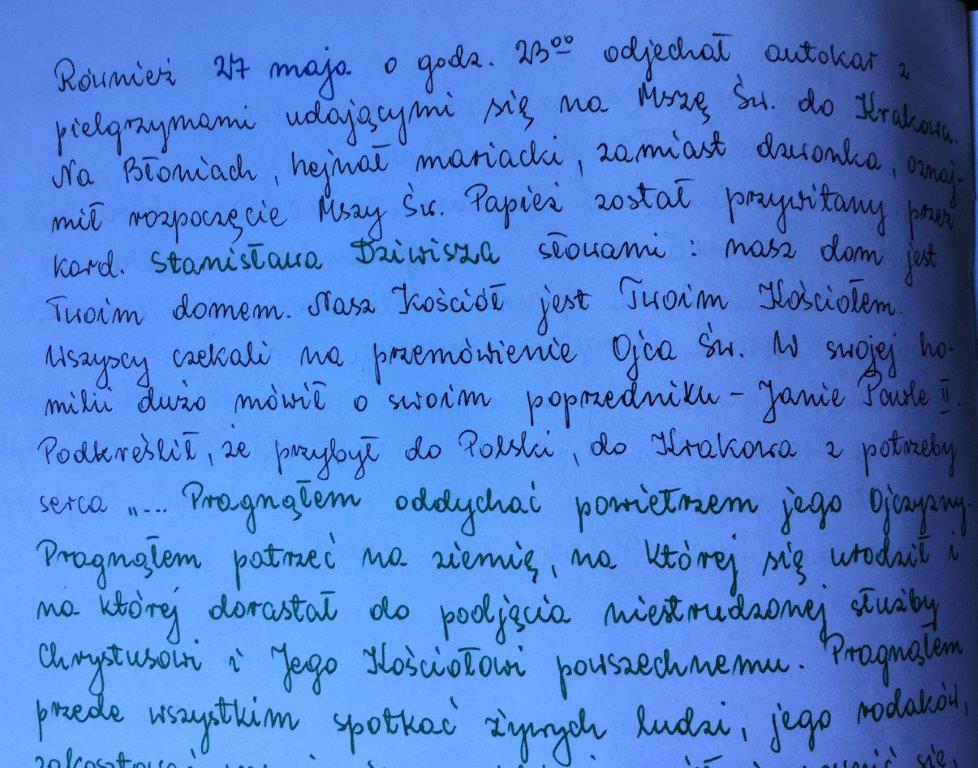 Również 27 maja o godz. 23⁰⁰ odjechał autokar z
pielgrzymami udającymi się na Mszę Św. do Krakowa.
Na Błoniach, hejnał mariacki, zamiast dzwonka, oznaj-
mił rozpoczęcie Mszy Św. Papież został przywitany przez
kard. Stanisława Dziwisza słowami: nasz dom jest
Twoim domem. Nasz Kościół jest Twoim Kościołem.
Wszyscy czekali na przemówienie Ojca Św. W swojej ho-
milii dużo mówił o swoim poprzedniku - Janie Pawle II.
Podkreślił, że przybył do Polski, do Krakowa z potrzeby
serca „... Pragnąłem oddychać powietrzem jego Ojczyzny.
Pragnąłem patrzeć na ziemię, na której się urodził i
na której dorastał do podjęcia niestrudzonej służby
Chrystusowi i Jego Kościołowi powszechnemu. Pragnąłem
przede wszystkim spotkać żywych ludzi, jego rodaków,